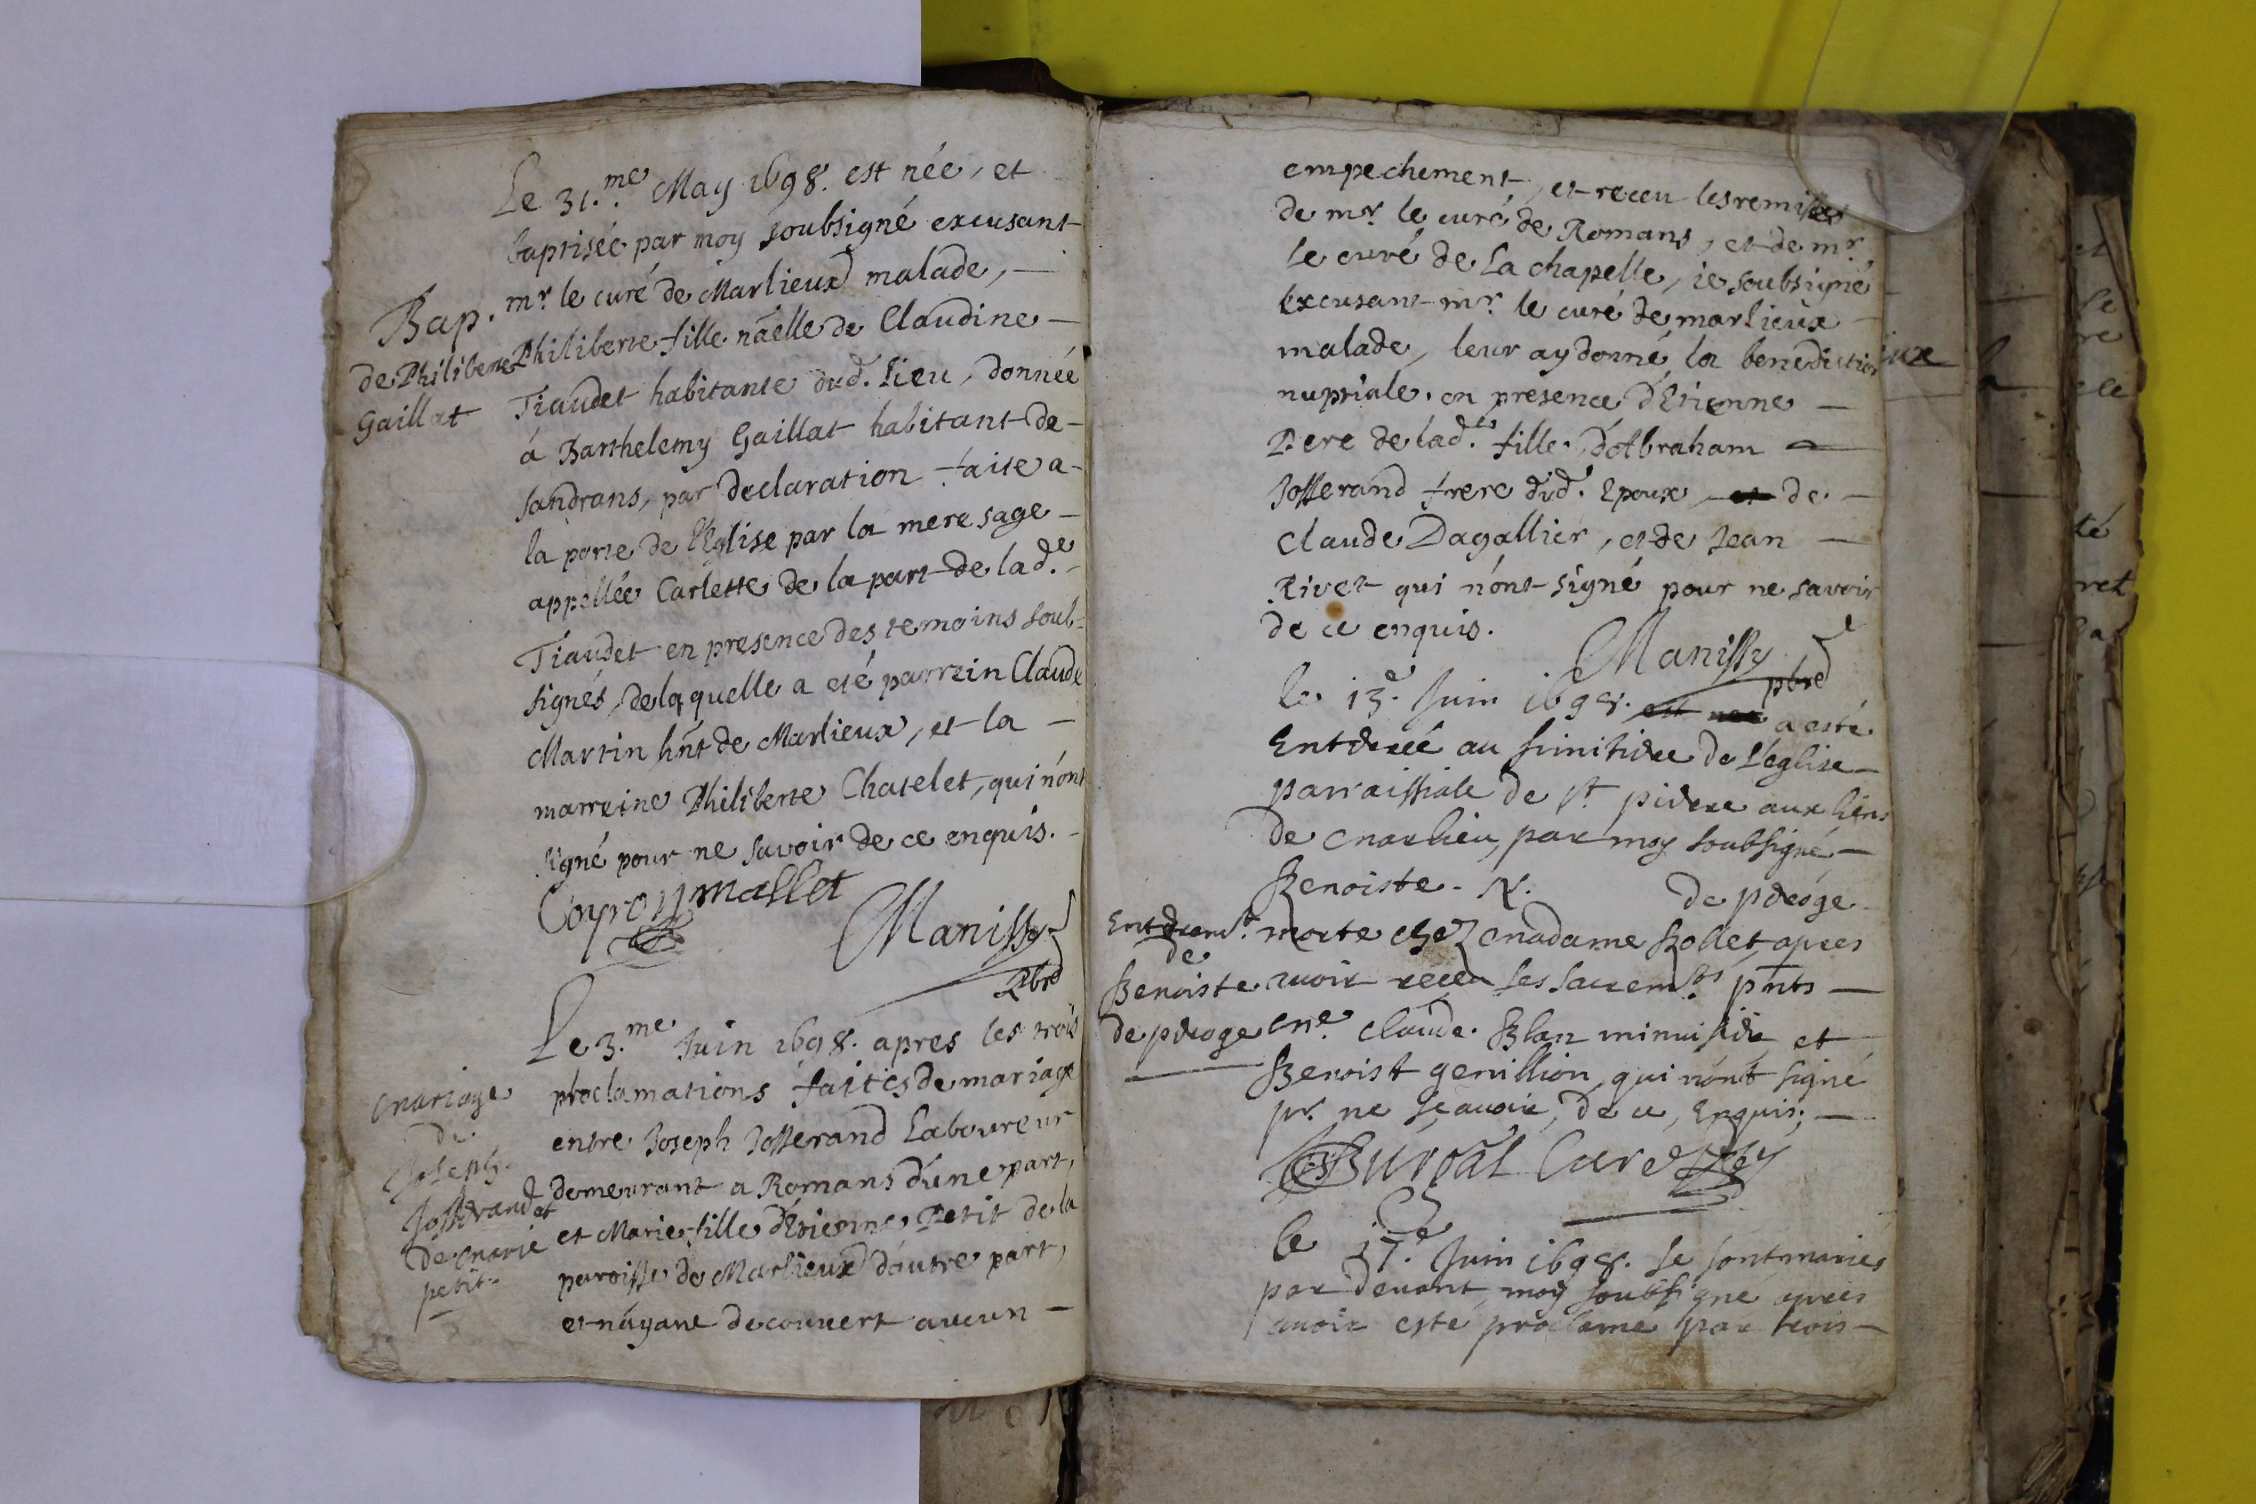 Le 31.me May 1698. est née, et
baptisée par moy soubsigné excusant
mr. le curé de Marlieux malade, —
Bap.
de Philiberte
Gaillat
Philiberte fille nãelle de Claudine —
Tiaudet habitante dud. lieu, donnée
á Barthelemy Gaillat habitant de-
sandrans, par declaration faite a-
la porte de l'Eglise par la mere sage —
appellée Carlette de la part de lad.e -
Tiaudet en presence des temoins soub-
signés, de laquelle a eté parrein Claude
Martin hñt de Marlieux, et la —
marreine Philiberte Chatelet, qui n'ont
signé pour ne savoir de ce enquis. -
Mallet
Manissy
Pbre
Le 3.me Juin 1698. apres les trois
Mariage
de
Joseph
Josserand et
de Marie
petit.
proclamations faites de mariage
entre Joseph Josserand Laboureur
demeurant a Romans d'une part,
et Marie fille d'Etienne Petit de la
paroisse de Marlieux d'autre part,
et n'ayant decouvert aucun —
empechement, et receu les remises
de mr. le curé de Romans, et de mr.
le curé de La chapelle, ie soubsigné
excusant mr. le curé de marlieux —
malade, leur ay donné la benediction
nuptiale. en presence d'Etienne —
Pere de lad.e fille, d'Abraham —
Josserand frere dud. Epoux, et de —
Claude Dagallier, et de Jean —
Rivet qui n'ont signé pour ne savoir
de ce enquis.
Manissy
pbre
le 13.e Juin 1698. est nee a esté
Enterreé au simitiere de L'eglise —
parraissiale de st pierre aux liens
de Marlieu, par moy soubsigné —
Benoiste. N. de pdroge
Enterremt.
de
Benoiste
de pdroge
morte chez Madame Bollet, apres
avoir receu les sacremts. pñts —
Me. Claude Blan minuisier et
Benoist genillion, qui n'ont signé
pr. ne sçavoir, de ce, Enquis; —
Burdat Curé
le 17.e Juin 1698. se sont mariés
par devant moy soubsigné apres
avoir esté proclamé par trois —